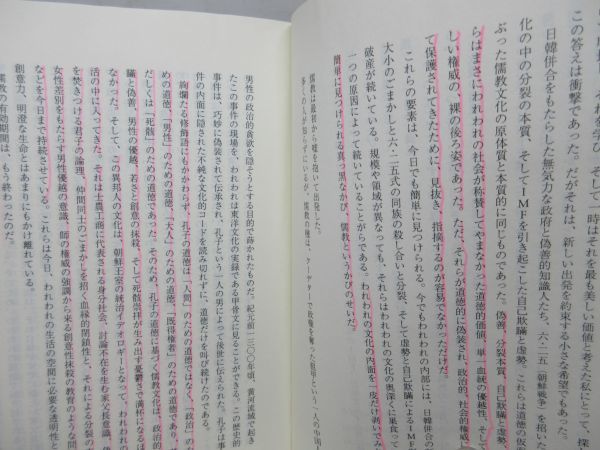 一時はそれを最も美しい価値と考えた私にとって、探
この答えは衝撃であった。だがそれは、新しい出発を約束する小さな希望でもあった。
日韓併合をもたらした無気力な政府と偽善的知識人たち、六・二五（朝鮮戦争）を招いた
化の中の分裂の本質、そしてIMFを引き起こした自己欺瞞と虚勢。これらは道徳の仮面
ぶった儒教文化の原体質と本質的に同じものであった。偽善、分裂本質、自己欺瞞と虚勢、
らはまさにわれわれの社会が称賛してやまなかった道徳的価値、単一血統の優越性、そして
しい権威の、裸の後ろ姿であった。ただ、それらが道徳的に偽装され、政治的、社会的権威に
て保護されてきたために、見抜き、指摘するのが容易でなかっただけだ。
これらの要素は、今日でも簡単に見つけられる。今でもわれわれの内部には、日韓併合の
大小のごまかしと六・二五式の同族の殺し合いと分裂、そして虚勢と自己欺瞞によるIMF
破産が続いている。規模や領域が異なっても、それらはわれわれの文化の奥深くに巣食って
一つの原因によって続いていることがらである。われわれの文化の内面を一皮だけ剝いてみ
簡単に見つけられる真っ黒なかび、儒教というかびのせいだ。
儒教は最初から嘘を抱いて出発した。
男性の政治的貪欲を隠そうとする目的で蒔かれたものだ。紀元前一三〇〇年頃、黄河流域で起き
たこの事件の現場を、われわれは東洋文化の実録である甲骨文に見ることができる。この歴史的
事件は、巧妙に偽装されて伝承され、孔子という一人の男によって後世に伝えられた。孔子は事
件の内面に隠された不純な文化的コードを読み切れずに、道徳だけを叫び続けたのである。
絢爛たる修飾語にもかかわらず、孔子の道徳は「人間」のための道徳ではなく、「政治」のた
めの道徳、「男性」のための道徳、「大人」のための道徳、「既得権者」のための道徳であり、
だしくは「死骸」のための道徳であった。そのため、孔子の道徳に基づく儒教文化は、政治的
瞞と偽善、男性の優越、若さと創意の抹殺、そして死骸崇拝が生み出す憂鬱さで満杯になるほ
なかった。そして、この異邦人の文化は、朝鮮王室の統治イデオロギーとなって、われわれの
活の中に入ってきた。それは士農工商に代表される身分社会、討論不在を生む家父長意識、
を焚きつける君子の論理、仲間同士のごまかしを招く血縁的閉鎖性と、それによる分裂の
女性差別をもたらす男性優越の意識、師の権威の強調から来る創意性抹殺の教育のような問
などを今日まで持続させている。これらは今日、われわれの生活の空間に必要な透明性と
創意力、明澄な生命とはあまりにもかけ離れている。
儒教の有効期間は、もう終わったのだ。